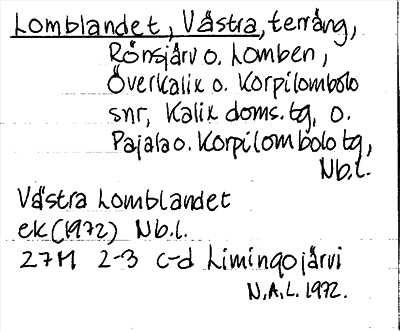 Lomblandet, Västra, terräng,
Rönsjärv o. Lomben,
Överkalix o. Korpilombolo
snr, Kalix doms. tg, o.
Pajala o. Korpilombolo tg,
Nb.l.
Västra Lomblandet
ek (1972) Nb.l.
27M 2-3 c-d Liminqojärvi
N.A.L. 1972.